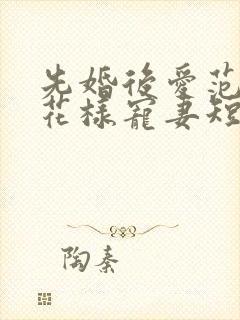 先婚後愛范
花樣寵妻短
陶秦